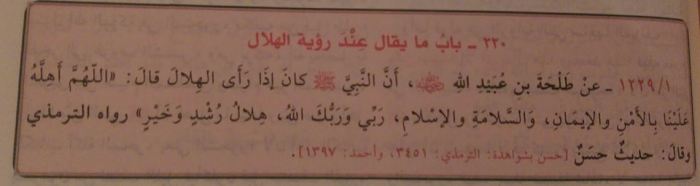 ٢٢٠ ـ بابُ ما يقال عِنْدَ رؤية الهلال
١/١٢٢٩ ـ عنْ طَلْحَةَ بنِ عُبَيْدِ اللهِ ﷺ، أَنَّ النَّبِيَّ ﷺ كانَ إِذَا رَأَى الهِلالَ قالَ: «اللَّهُمَّ أَهِلَّهُ
عَلَيْنَا بِالأَمْنِ والإِيمَانِ، وَالسَّلامَةِ والإِسْلامِ، رَبِّي وَرَبُّكَ اللهُ، هِلالُ رُشْدٍ وَخَيْرٍ» رواه الترمذي
وقالَ: حديثٌ حسَنٌ [حسن بشواهدة: الترمذي: ٣٤٥١، وأحمد: ١٣٩٧].